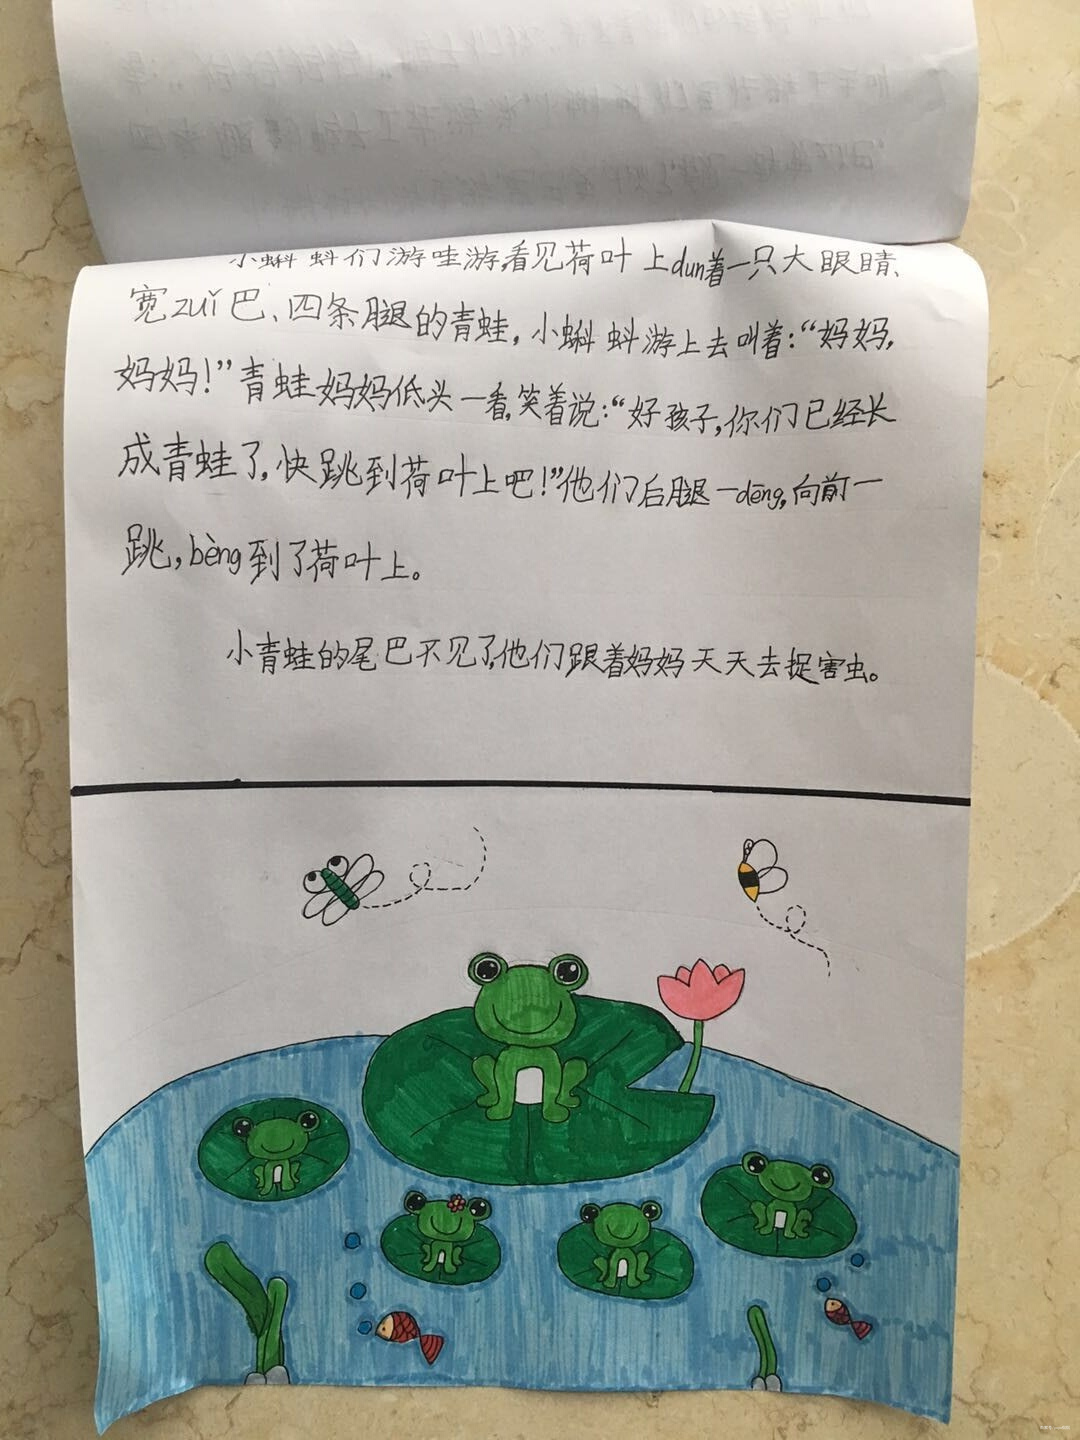 小蝌蚪们游哇游,看见荷叶上dun着一只大眼睛、
宽zuǐ巴、四条腿的青蛙,小蝌蚪游上去叫着:“妈妈,
妈妈!”青蛙妈妈低头一看,笑着说:“好孩子,你们已经长
成青蛙了,快跳到荷叶上吧!”他们后腿一dēng,向前一
跳,bèng到了荷叶上。
小青蛙的尾巴不见了,他们跟着妈妈天天去捉害虫。